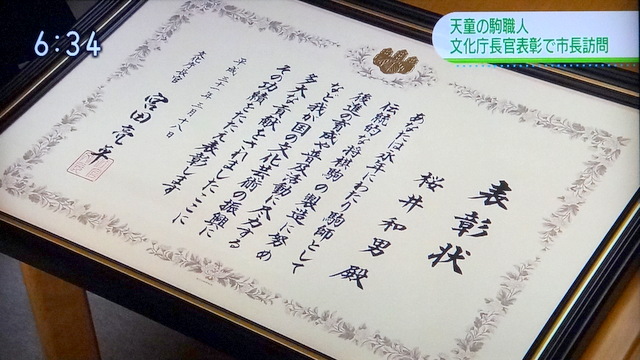 6:34
天童の駒職人
文化庁長官表彰で市長訪問
表彰状
桜井和男殿
あなたは永年にわたり駒師として
伝統的な将棋駒の製造に努め
後進の育成や普及活動に尽力する
など我が国の文化芸術の振興に
多大な貢献をされましたここに
その功績をたたえ表彰します
平成三十一年三月十八日
文化庁長官
宮田亮平